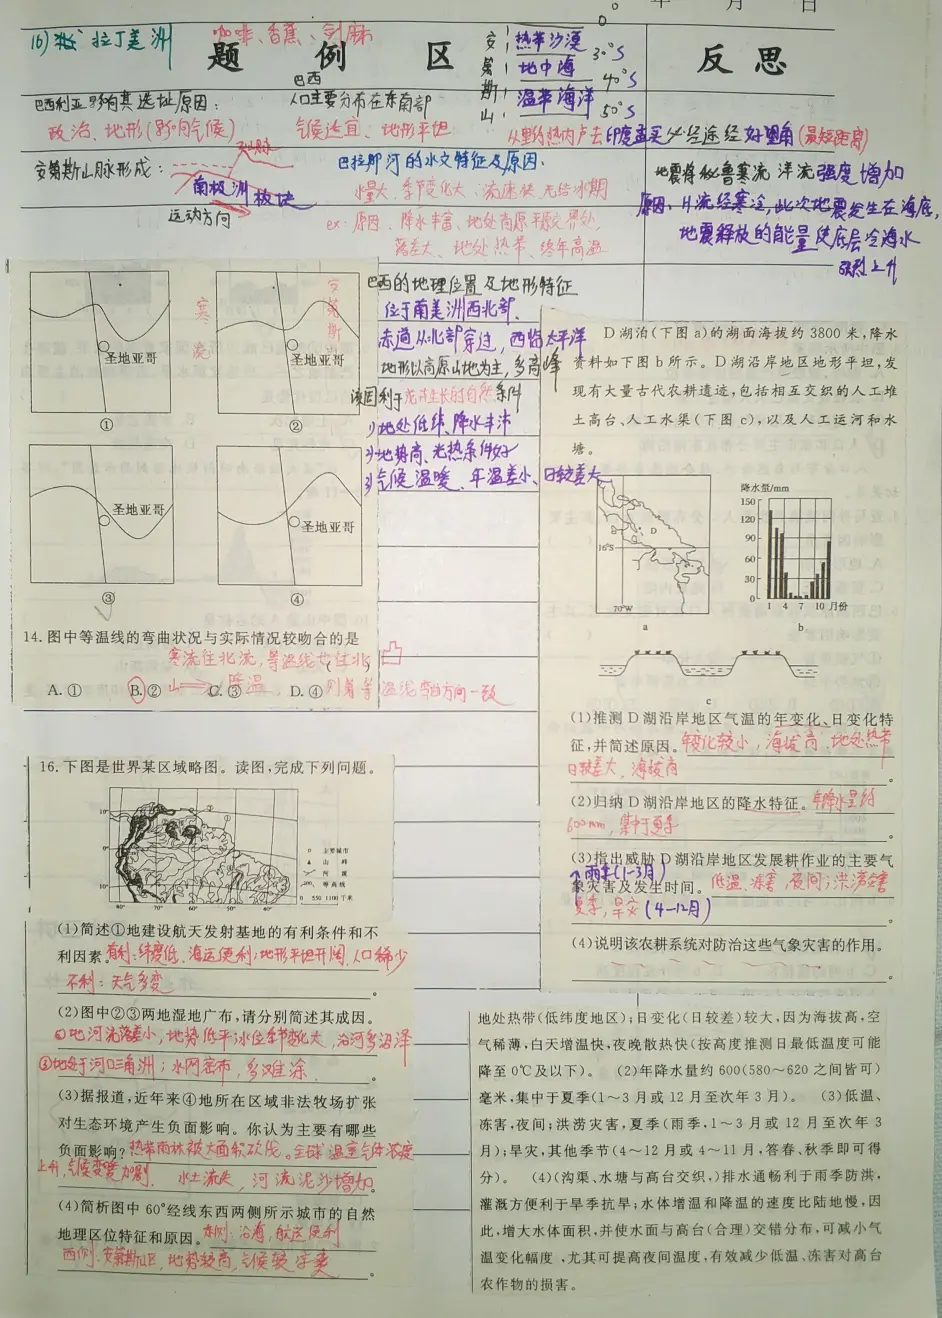 年 月 日
16) 拉丁美洲
咖啡、香蕉、剑麻
题 例 区
反 思
安第斯山
热带沙漠
30°S
地中海
40°S
温带海洋
50°S
巴西利亚影响其选址原因：
政治、地形(影响气候)
巴西
人口主要分布在东南部
气候适宜、地形平坦
从里约热内卢去印度孟买必经途经好望角(最短距离)
安第斯山脉形成：
南极洲板块
运动方向
巴拉那河的水文特征及原因.
水量大、季节变化大、流速快、无结冰期
ex: 原因、降水丰富、地处高原平原交界处,
落差大、地处热带、终年高温
地震将秘鲁寒流 洋流强度增加
原因、片流经寒冷,此次地震发生在海底,
地震释放的能量使底层冷海水
强烈上升
圣地亚哥
①
圣地亚哥
②
圣地亚哥
③
圣地亚哥
④
寒流
安第斯山
14. 图中等温线的弯曲状况与实际情况较吻合的是
( )
寒流往北流,等温线也往北凸
A. ① B. ② C. ③ D. ④
山 降温
则肩等温线弯曲方向一致
巴西的地理位置及地形特征
位于南美洲西北部、
赤道从北部穿过,西临太平洋
地形以高原山地为主,多高峰
该国利于花卉生长的自然条件
1) 地处低纬、降水丰沛
2) 地势高、光热条件好
3) 气候温暖、年温差小、日较差大
D 湖泊(下图 a)的湖面海拔约 3800 米,降水
资料如下图 b 所示。D 湖沿岸地区地形平坦,发
现有大量古代农耕遗迹,包括相互交织的人工堆
土高台、人工水渠(下图 c),以及人工运河和水
塘。
D
16°S
70°W
a
降水量/mm
150
120
90
60
30
0
1 4 7 10 月份
b
c
(1)推测 D 湖沿岸地区气温的年变化、日变化特
征,并简述原因。年变化较小,海拔高、地处热带
日较差大,海拔高
。
(2)归纳 D 湖沿岸地区的降水特征。年降水量约
600mm,集中于夏季
。
(3)指出威胁 D 湖沿岸地区发展耕作业的主要气
雨季(1-3月)
象灾害及发生时间。低温、冻害,夜间;洪涝灾害
夏季,旱灾(4-12月)
。
(4)说明该农耕系统对防治这些气象灾害的作用。
。
16. 下图是世界某区域略图。读图,完成下列问题。
10°
0°
10°
80° 70° 60° 50° 40°
主要城市
山 峰
河 流
200 等高线
0 550 1100 千米
(1)简述①地建设航天发射基地的有利条件和不
利因素。有利:纬度低、海运便利;地形平坦开阔,人口稀少
不利:天气多变
。
(2)图中②③两地湿地广布,请分别简述其成因。
②地河流落差小,地势低平;水位季节变化大,沿河多沼泽
③地处于河口三角洲;水网密布,多滩涂
。
(3)据报道,近年来④地所在区域非法牧场扩张
对生态环境产生负面影响。你认为主要有哪些
负面影响?热带雨林被大面积砍伐。全球温室气体浓度
上升,气候变暖加剧. 水土流失,河流泥沙增加
。
(4)简析图中 60°经线东西两侧所示城市的自然
地理区位特征和原因。东侧:沿海,航运便利
西侧:安第斯山区,地势较高,气候较 凉爽
。
地处热带(低纬度地区);日变化(日较差)较大,因为海拔高,空
气稀薄,白天增温快,夜晚散热快(按高度推测日最低温度可能
降至 0℃及以下)。 (2)年降水量约 600(580～620 之间皆可)
毫米,集中于夏季(1～3 月或 12 月至次年 3 月)。 (3)低温、
冻害,夜间;洪涝灾害,夏季(雨季,1～3 月或 12 月至次年 3
月);旱灾,其他季节(4～12 月或 4～11 月,答春、秋季即可得
分)。 (4)(沟渠、水塘与高台交织,)排水通畅利于雨季防洪,
灌溉方便利于旱季抗旱;水体增温和降温的速度比陆地慢,因
此,增大水体面积,并使水面与高台(合理)交错分布,可减小气
温变化幅度,尤其可提高夜间温度,有效减少低温、冻害对高台
农作物的损害。